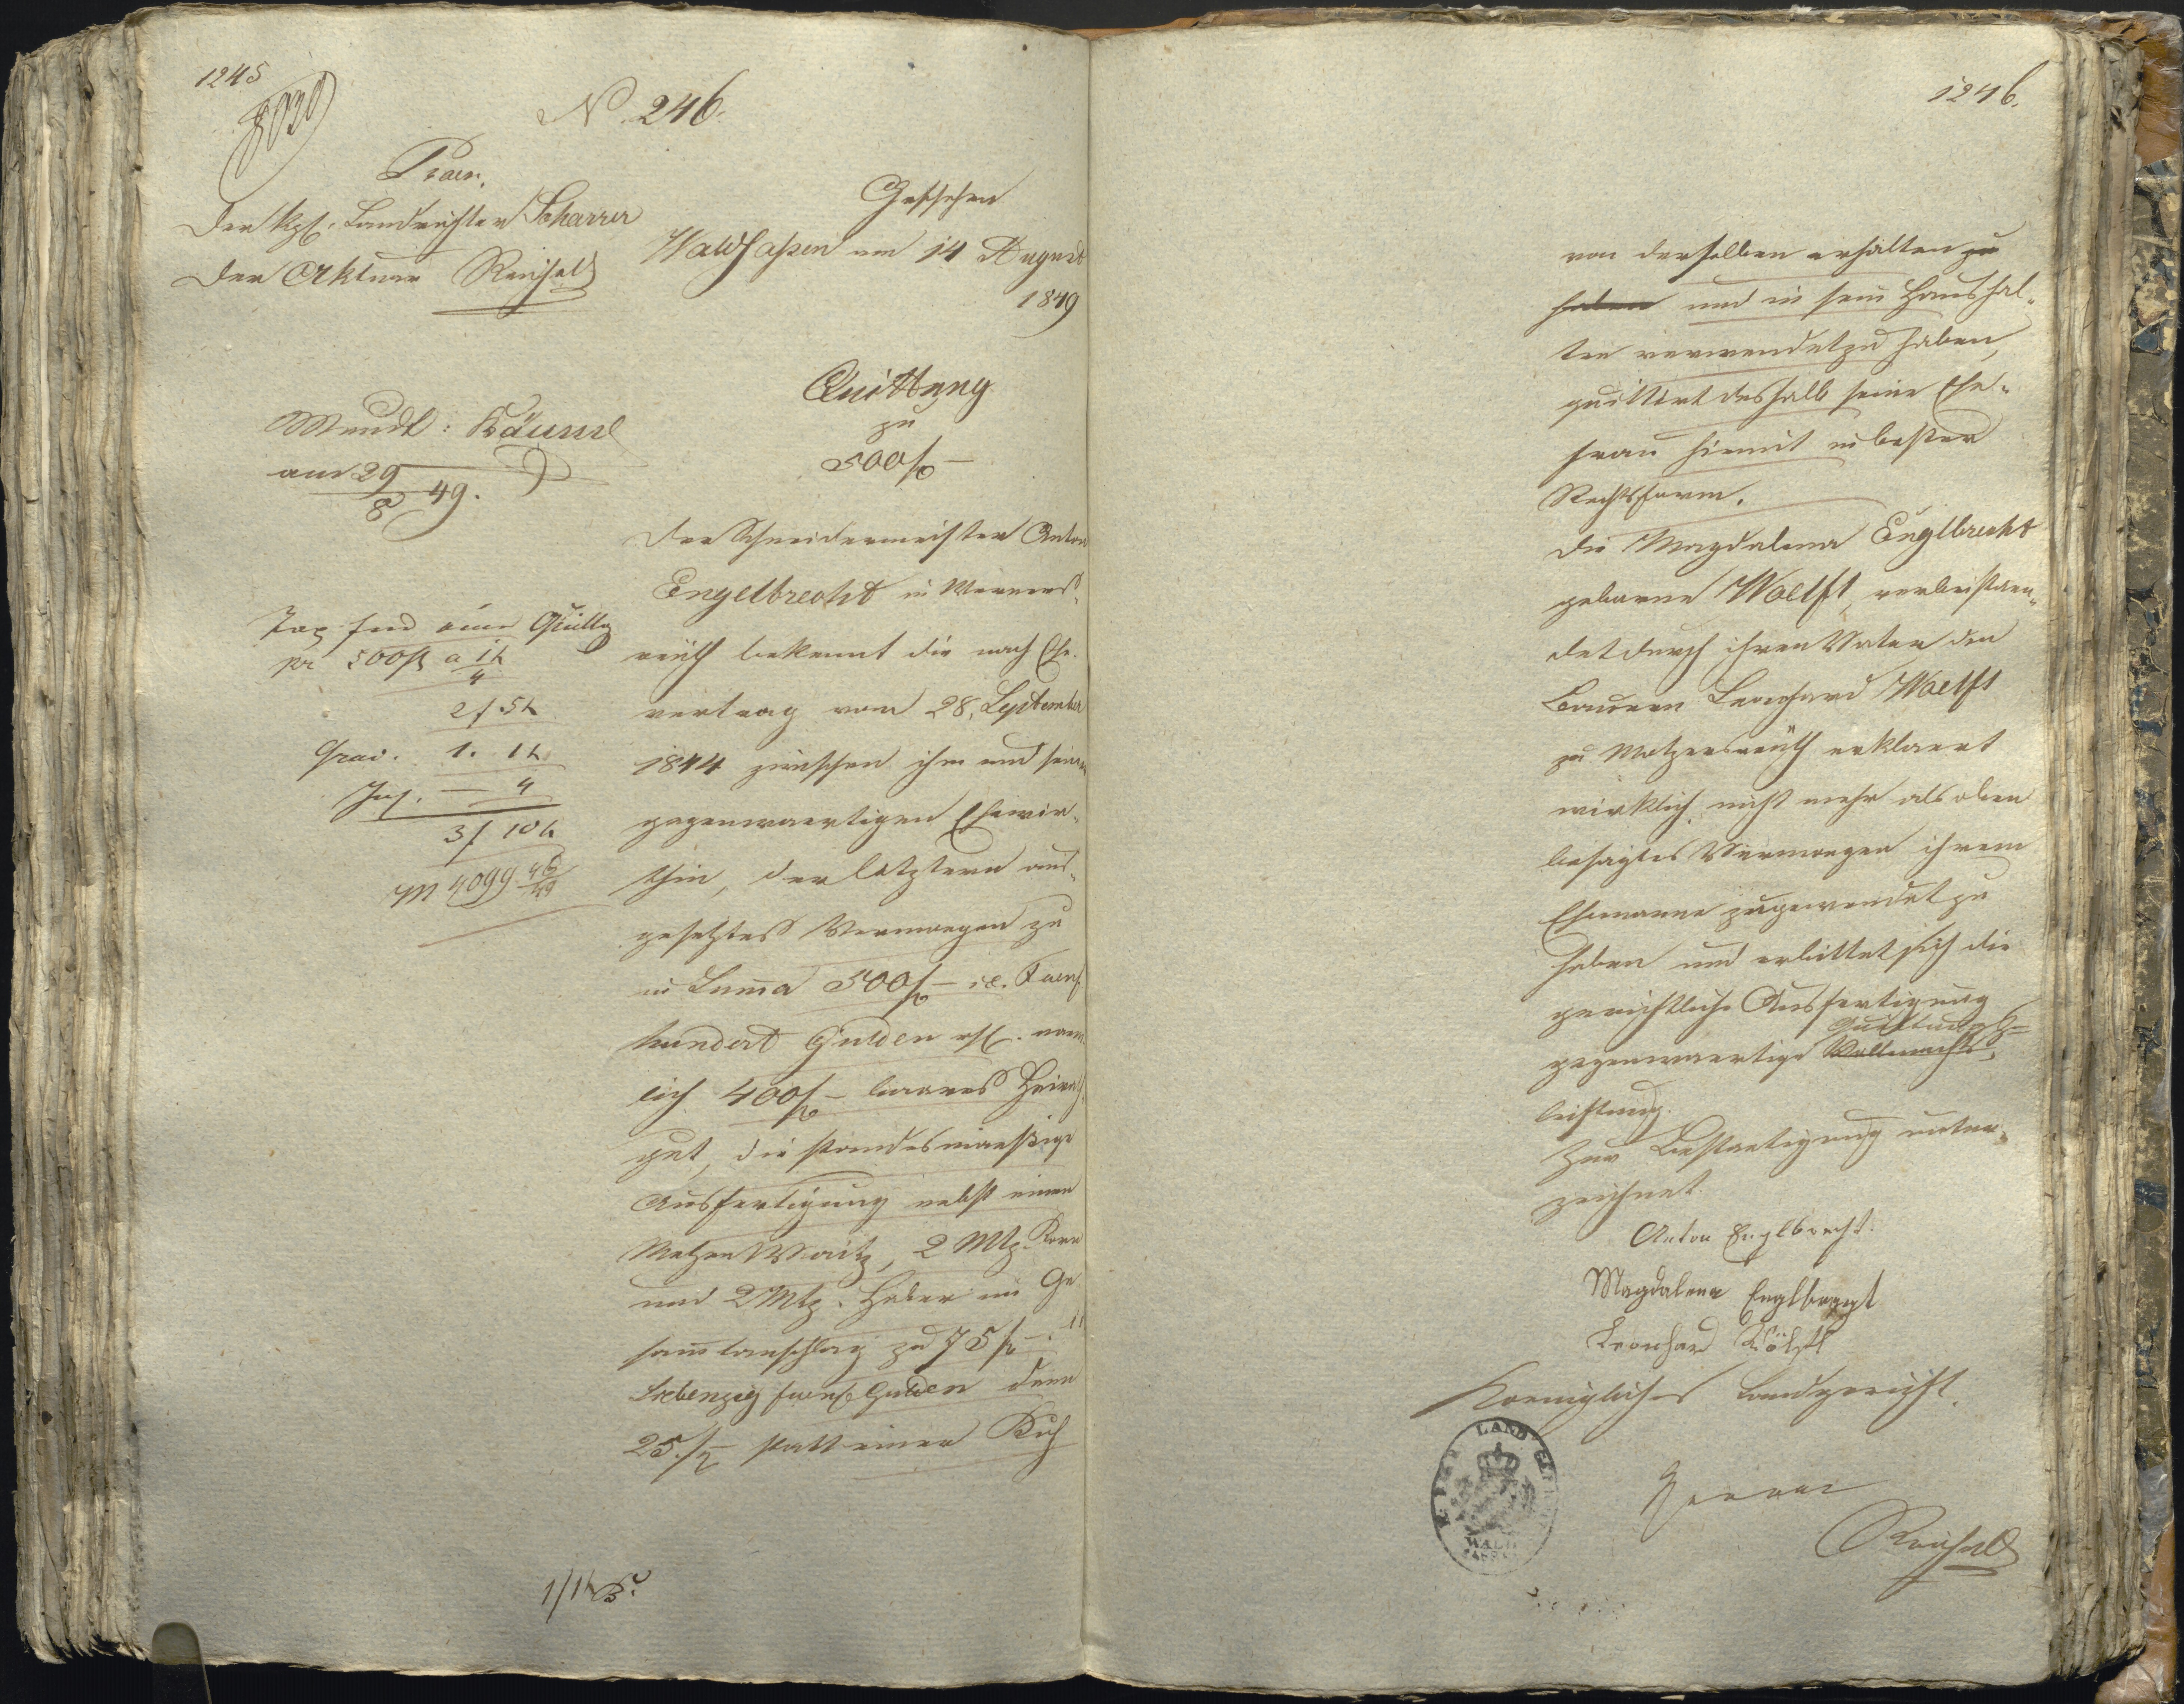 1245
8020
N. 246.
Praes.
Der kgl. Landrichter Scharrer
Der Aktuar Reichold
Geschehen
Waldsaßen am 14 August
1849
Mundt: Bäuml
am 29/8 49.
Quittung
zu
500 fl –
Der Schneidermeister Anton
Engelbrecht in Werners-
reuth bekennt die nach Ehe-
vertrag vom 28. September
1844 zwischen ihm und seiner
gegenwaertigen Ehewir-
thin, der letztern aus-
gesetztes Vermoegen zu
in Summa 500 fl – i.e. Fuenf
hundert Gulden rh. naem
lich 400 fl – baares Heirath
gut, die standesmaeßige
Ausfertigung nebst einem
Metzen Waitz, 2 Mtz. Korn
und 2 Mtz. Haber im Ge
sammtanschlag zu 75 fl –
Siebenzig fuenf Gulden dann
25 fl – statt einer Kuh
Tax für eine Quittg
pr 500 fl a 1 k/4
2 f 5 k
Grad. 1. 1 k
Ins. – 4
3 f 10 k
M 4099 48/49
1246.
von derselben erhalten zu
haben und in sein Haushal-
ten verwendet zu haben,
quittirt deshalb seine Ehe-
frau hiemit in bester
Rechtsform.
Die Magdalena Englbrecht
geborne Woelfl, verbeistaen-
det durch ihren Vater den
Bauern Leonhard Woelfl
zu Motzersreuth erklaert
wirklich nicht mehr als oben
besagtes Vermoegen ihrem
Ehemanne zugewendet zu
haben und erbittet sich die
gerichtliche Ausfertigung
Quittungs-
gegenwaertige Vollmachts-
leistung.
Zur Bestaetigung unter-
zeichnet.
Anton Englbrecht.
Magdalena Englbrecht
Leonhard Wölfl
Koenigliches Landgericht.
LAND
WALD
SASSEN
Reichold